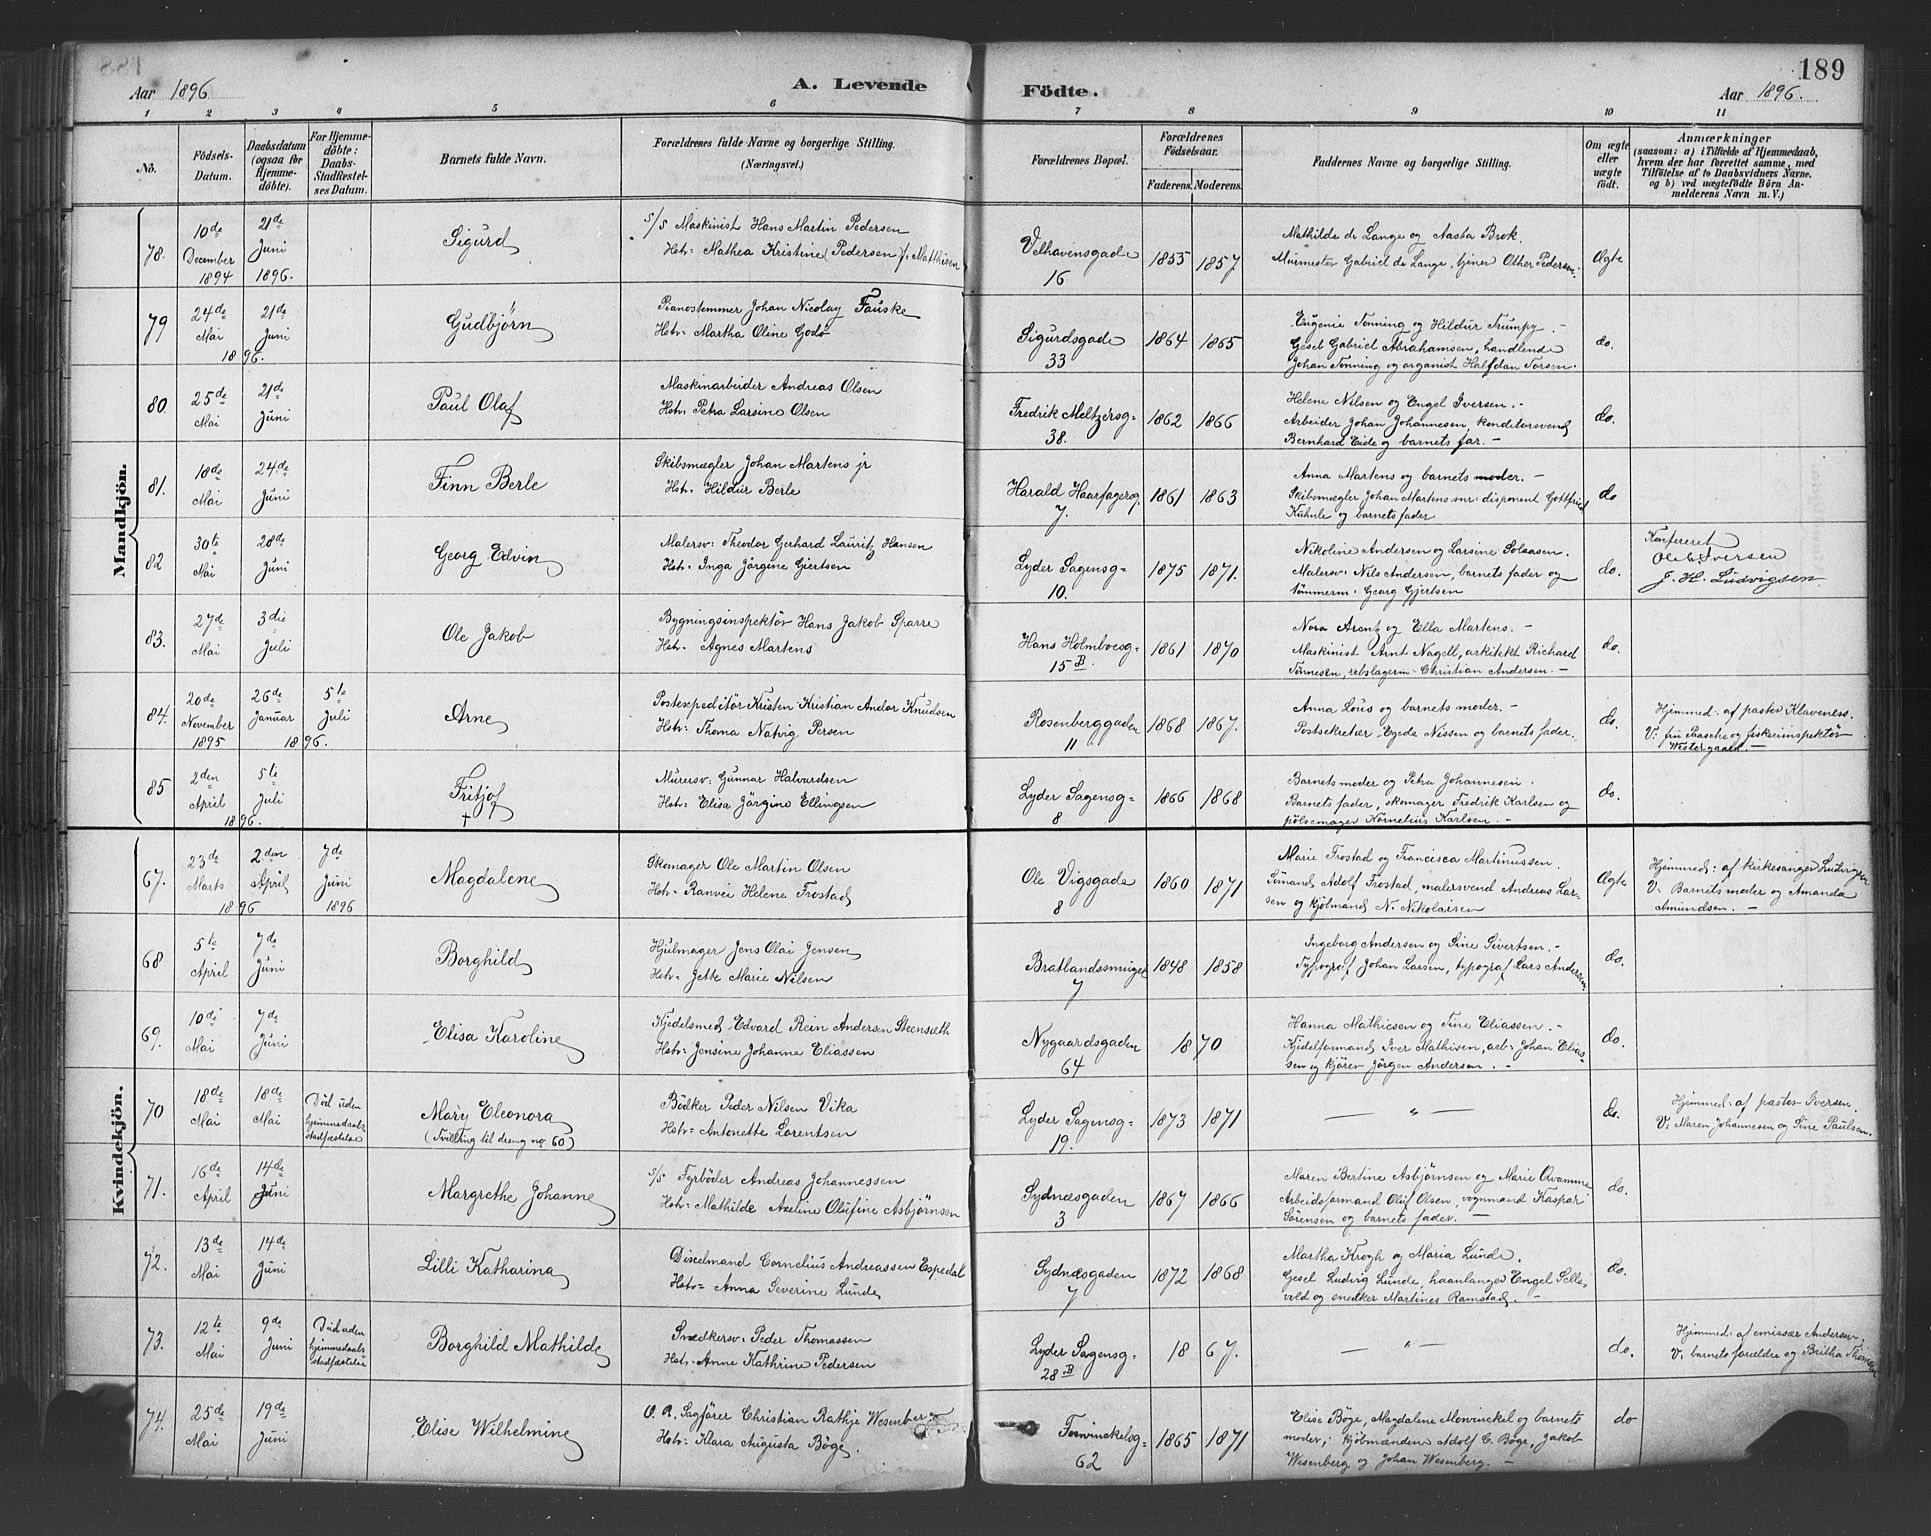 189
Aar 1896. A. Levende Födte. Aar 1896.
1 2 3 4 5 6 7 8 9 10 11
No.
Födsels-Datum.
Daabsdatum (ogsaa for Hjemme-döbte).
For Hjemme-döbte: Daabs-Stadfæstel-ses Datum.
Barnets fulde Navn.
Forældrenes fulde Navne og borgerlige Stilling. (Næringsvei.)
Forældrenes Bopæl.
Forældrenes Födselsaar.
Faderens. Moderens.
Faddernes Navne og borgerlige Stilling.
Om ægte eller uægte födt.
Anmærkninger
(saasom: a) i Tilfælde af Hjemmedaab,
hvem der har forrettet samme, med
Tilföielse af to Daabsvidners Navne,
og b) ved uægtefödte Börn An-
melderens Navn m. V.)
Mandkjön.
78. 10de December 1894 21de Juni 1896. Sigurd
S/S Maskinist Hans Martin Pedersen
Hstr: Mathea Kristine Pedersen f. Matthisen
Velhavensgade 16 1855 1857
Mathilde de Lange og Aasta Brok.
Murmester Gabriel de Lange, tjener Other Pedersen.
Ægte
79 24de Mai 21de Juni 1896. Gudbjörn
Pianostemmer Johan Nicolay Fauske
Hstr: Martha Oline Godö
Sigurdsgade 33 1864 1865
Eugenie Tonning og Hildur Trumpy. –
Gesel Gabriel Abrahamsen, handlende
Johan Tonning og organist Halfdan Torsen.
do.
80. 25de Mai 21de Juni Paul Olaf
Maskinarbeider Andreas Olsen
Hstr: Petra Larsine Olsen
Fredrik Meltzersg= 38. 1862 1866
Helene Nilsen og Engel Iversen. –
Arbeider Johan Johannesen, konditorsvend
Bernhard Eide og barnets far. –
do.
81. 18de Mai 24de Juni Finn Berle
Skibsmægler Johan Martens jr
Hstr: Hildur Berle
Harald Haarfagersg. 7. 1861 1863
Anna Martens og barnets moder. –
Skibsmægler Johan Martens snr: disponent Gottfried
Kuhnle og barnets fader
do
82 30te Mai 28de Juni Georg Edvin
Malersv: Theodor Gerhard Lauritz Hansen
Hstr: Inga Jörgine Gjertsen
Lyder Sagensg= 10. 1875 1871.
Nikoline Andersen og Larsine Solaasen.
Malersv: Nils Andersen, barnets fader og
tömmerm: Georg Gjertsen
do.
Konfereret
Ole B Iversen
J. H. Ludvigsen
83. 27de Mai 3die Juli Ole Jakob
Bygningsinspektör Hans Jakob Sparre
Hstr: Agnes Martens
Hans Holmboesg= 15 B. 1861 1870
Nora Arentz og Ella Martens. –
Maskinist Arnt Nagell, arkitekt Richard
Tönnesen, rebslagerm: Christian Andersen. –
do.
84. 20de November 1895 26de Januar 5te Juli 1896. Arne
Postexpeditör Kristen Kristian Andor Knudsen
Hstr: Thoma Natvig Persen
Rosenberggaden 11. 1868 1867.
Anna Lous og barnets moder. –
Postsekretær Eyede Nissen og barnets fader.
do.
Hjemmed: af pastor Klaveness.
V: fru Paasche og fiskeriinspektör
Westergaard –
85 2den April 5te Juli 1896. Fritjof †
Murersv: Gunnar Halvardsen
Hstr: Elisa Jörgine Ellingsen
Lyder Sagensg= 8 1866 1868
Barnets moder og Petra Johannesen.
Barnets fader, skomager Fredrik Karlsen og
pölsemager Kornelius Karlsen. –
do.
Kvindekjön.
67. 23de Marts 2den April 1896 7de Juni 1896 Magdalene
Skomager Ole Martin Olsen
Hstr: Ranvei Helene Frostad
Ole Vigsgade 8 1860 1871
Marie Frostad og Francisca Martinussen.
Sömand Adolf Frostad, malersvend Andreas Lar-
sen og kjöbmand N. Nikolaisen
Ægte
Hjemmed: af kirkesanger Ludvigsen
V: Barnets moder og Amanda
Amundsen. –
68 5te April 7de Juni Borghild
Hjulmager Jens Olai Jensen
Hstr: Jette Marie Nilsen
Bratlandssmuget 7 1848 1858
Ingeborg Andersen og Sine Sivertsen. –
Typograf Johan Larsen, typograf Lars Andersen.
do.
69. 10de Mai 7de Juni Elisa Karoline
Kjedelsmed Edvard Rein Andersen Steensæth
Hstr: Jensine Johanne Eliassen
Nygaardsgaden 64 1870
Hanna Mathiesen og Tine Eliassen. –
Kjedelformand Iver Mathisen, arb: Johan Elias-
sen og kjörer Jörgen Andersen. –
do.
70 18de Mai 18de Mai Död uden hjemmedaabs stadfæstelse Mary Eleonora
(Tvilling til dreng no 60)
Bödker Peder Nilsen Vika
Hstr: Antonette Lorentsen
Lyder Sagensg= 19. 1873 1871
— " —
do.
Hjemmed: af pastor Iversen.
V: Maren Johannesen og Sine Paulsen.
71. 16de April 14de Juni Margrethe Johanne
S/S Fyrböder Andreas Johannessen
Hstr: Mathilde Axeline Olufine Asbjörnsen
Sydnæsgaden 3 1867 1866
Maren Bertine Asbjörnsen og Marie Qvamme
Arbeidsformand Oluf Olsen, vognmand Kaspar
Sörensen og barnets fader. –
do.
72. 13de Mai 14de Juni Lilli Katharina
Dixelmand Cornelius Andreassen Espedal
Hstr= Anna Severine Lunde
Sydnæsgaden 7 1872 1868
Martha Krogh og Maria Lunde.
Gesel Ludvig Lunde, haanlanger Engel Selle-
vold og snedker Martines Ramstad. –
do.
73. 12te Mai 9de Juni Död uden hjemmedaabs stadfæstelse Borghild Mathilde
Snedkersv: Peder Thomassen
Hstr: Anne Kathrine Pedersen
Lyder Sagensg= 28 B 1867.
— " —
do.
Hjemmed: af emissær Andersen.
V: barnets forældre og Britha Thomsen
74. 25de Mai 19de Juni Elise Wilhelmine
O. R. Sagförer Christian Rathje Wesenberg
Hstr: Klara Augusta Böge.
Fosswinckelsg= 62 1865 1871
Elise Böge, Magdalene Mowinckel og barnets
moder; kjöbmændene Adolf C. Böge, Jakob
Wesenberg og Johan Wesenberg. –
do